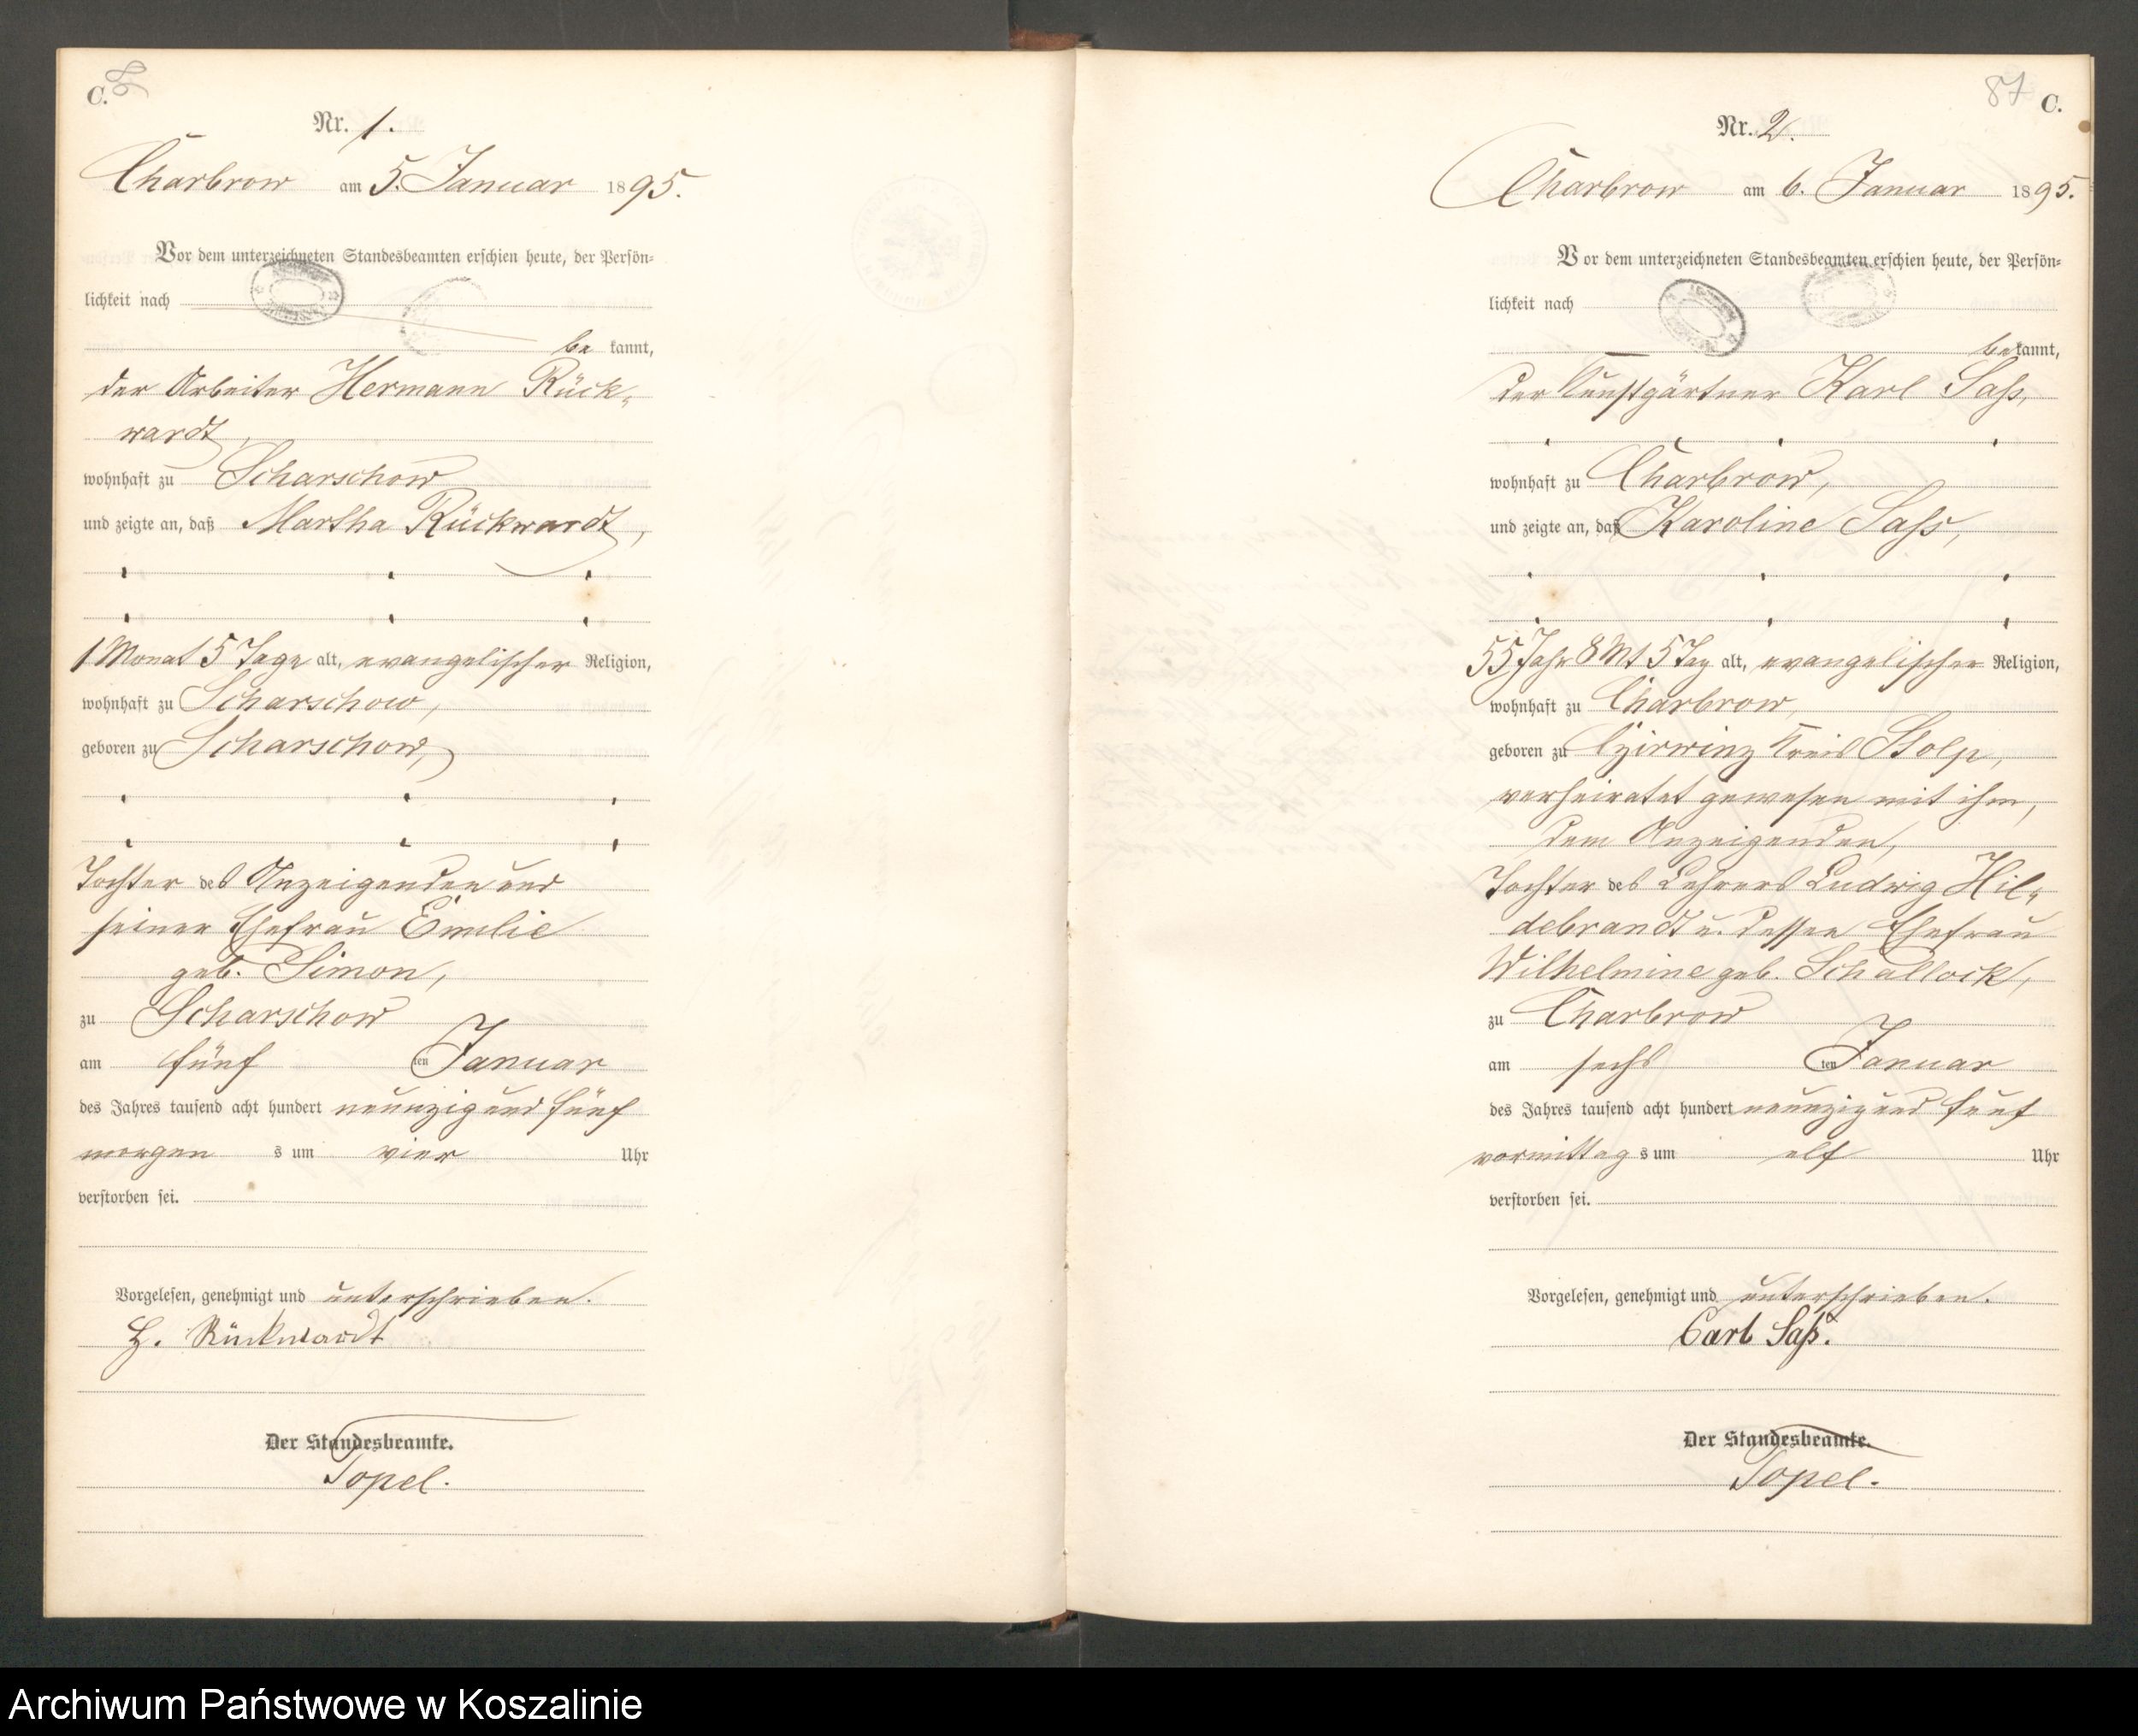 C.
Nr. 1.
Charbrow am 5. Januar 1895.
Vor dem unterzeichneten Standesbeamten erschien heute, der Persön-
lichkeit nach
be kannt,
der Arbeiter Hermann Rück-
wardt,
wohnhaft zu Scharschow
und zeigte an, daß Martha Rückwardt,
1 Monat 5 Tage alt, evangelischer Religion,
wohnhaft zu Scharschow,
geboren zu Scharschow,
Tochter des Anzeigenden und
seiner Ehefrau Emilie
geb. Simon,
zu Scharschow
am fünf ten Januar
des Jahres tausend acht hundert neunzig und fünf
morgen s um vier Uhr
verstorben sei.
Vorgelesen, genehmigt und unterschrieben.
H. Rückwardt
Der Standesbeamte.
Topel.
87 C.
Nr. 2.
Charbrow am 6. Januar 1895.
Vor dem unterzeichneten Standesbeamten erschien heute, der Persön-
lichkeit nach
be kannt,
der Kunstgärtner Karl Saß,
wohnhaft zu Charbrow,
und zeigte an, daß Karoline Saß,
55 Jahr 8 Mt 5 Tag alt, evangelischer Religion,
wohnhaft zu Charbrow,
geboren zu Kreis Stolp,
verheiratet gewesen mit ihm,
dem Anzeigenden,
Tochter des Lehrers Ludwig Hil-
debrandt u. dessen Ehefrau
Wilhelmine geb. Schallock,
zu Charbrow
am sechs ten Januar
des Jahres tausend acht hundert neunzig und fünf
vormittag s um elf Uhr
verstorben sei.
Vorgelesen, genehmigt und unterschrieben.
Carl Saß.
Der Standesbeamte.
Topel.
Archiwum Państwowe w Koszalinie